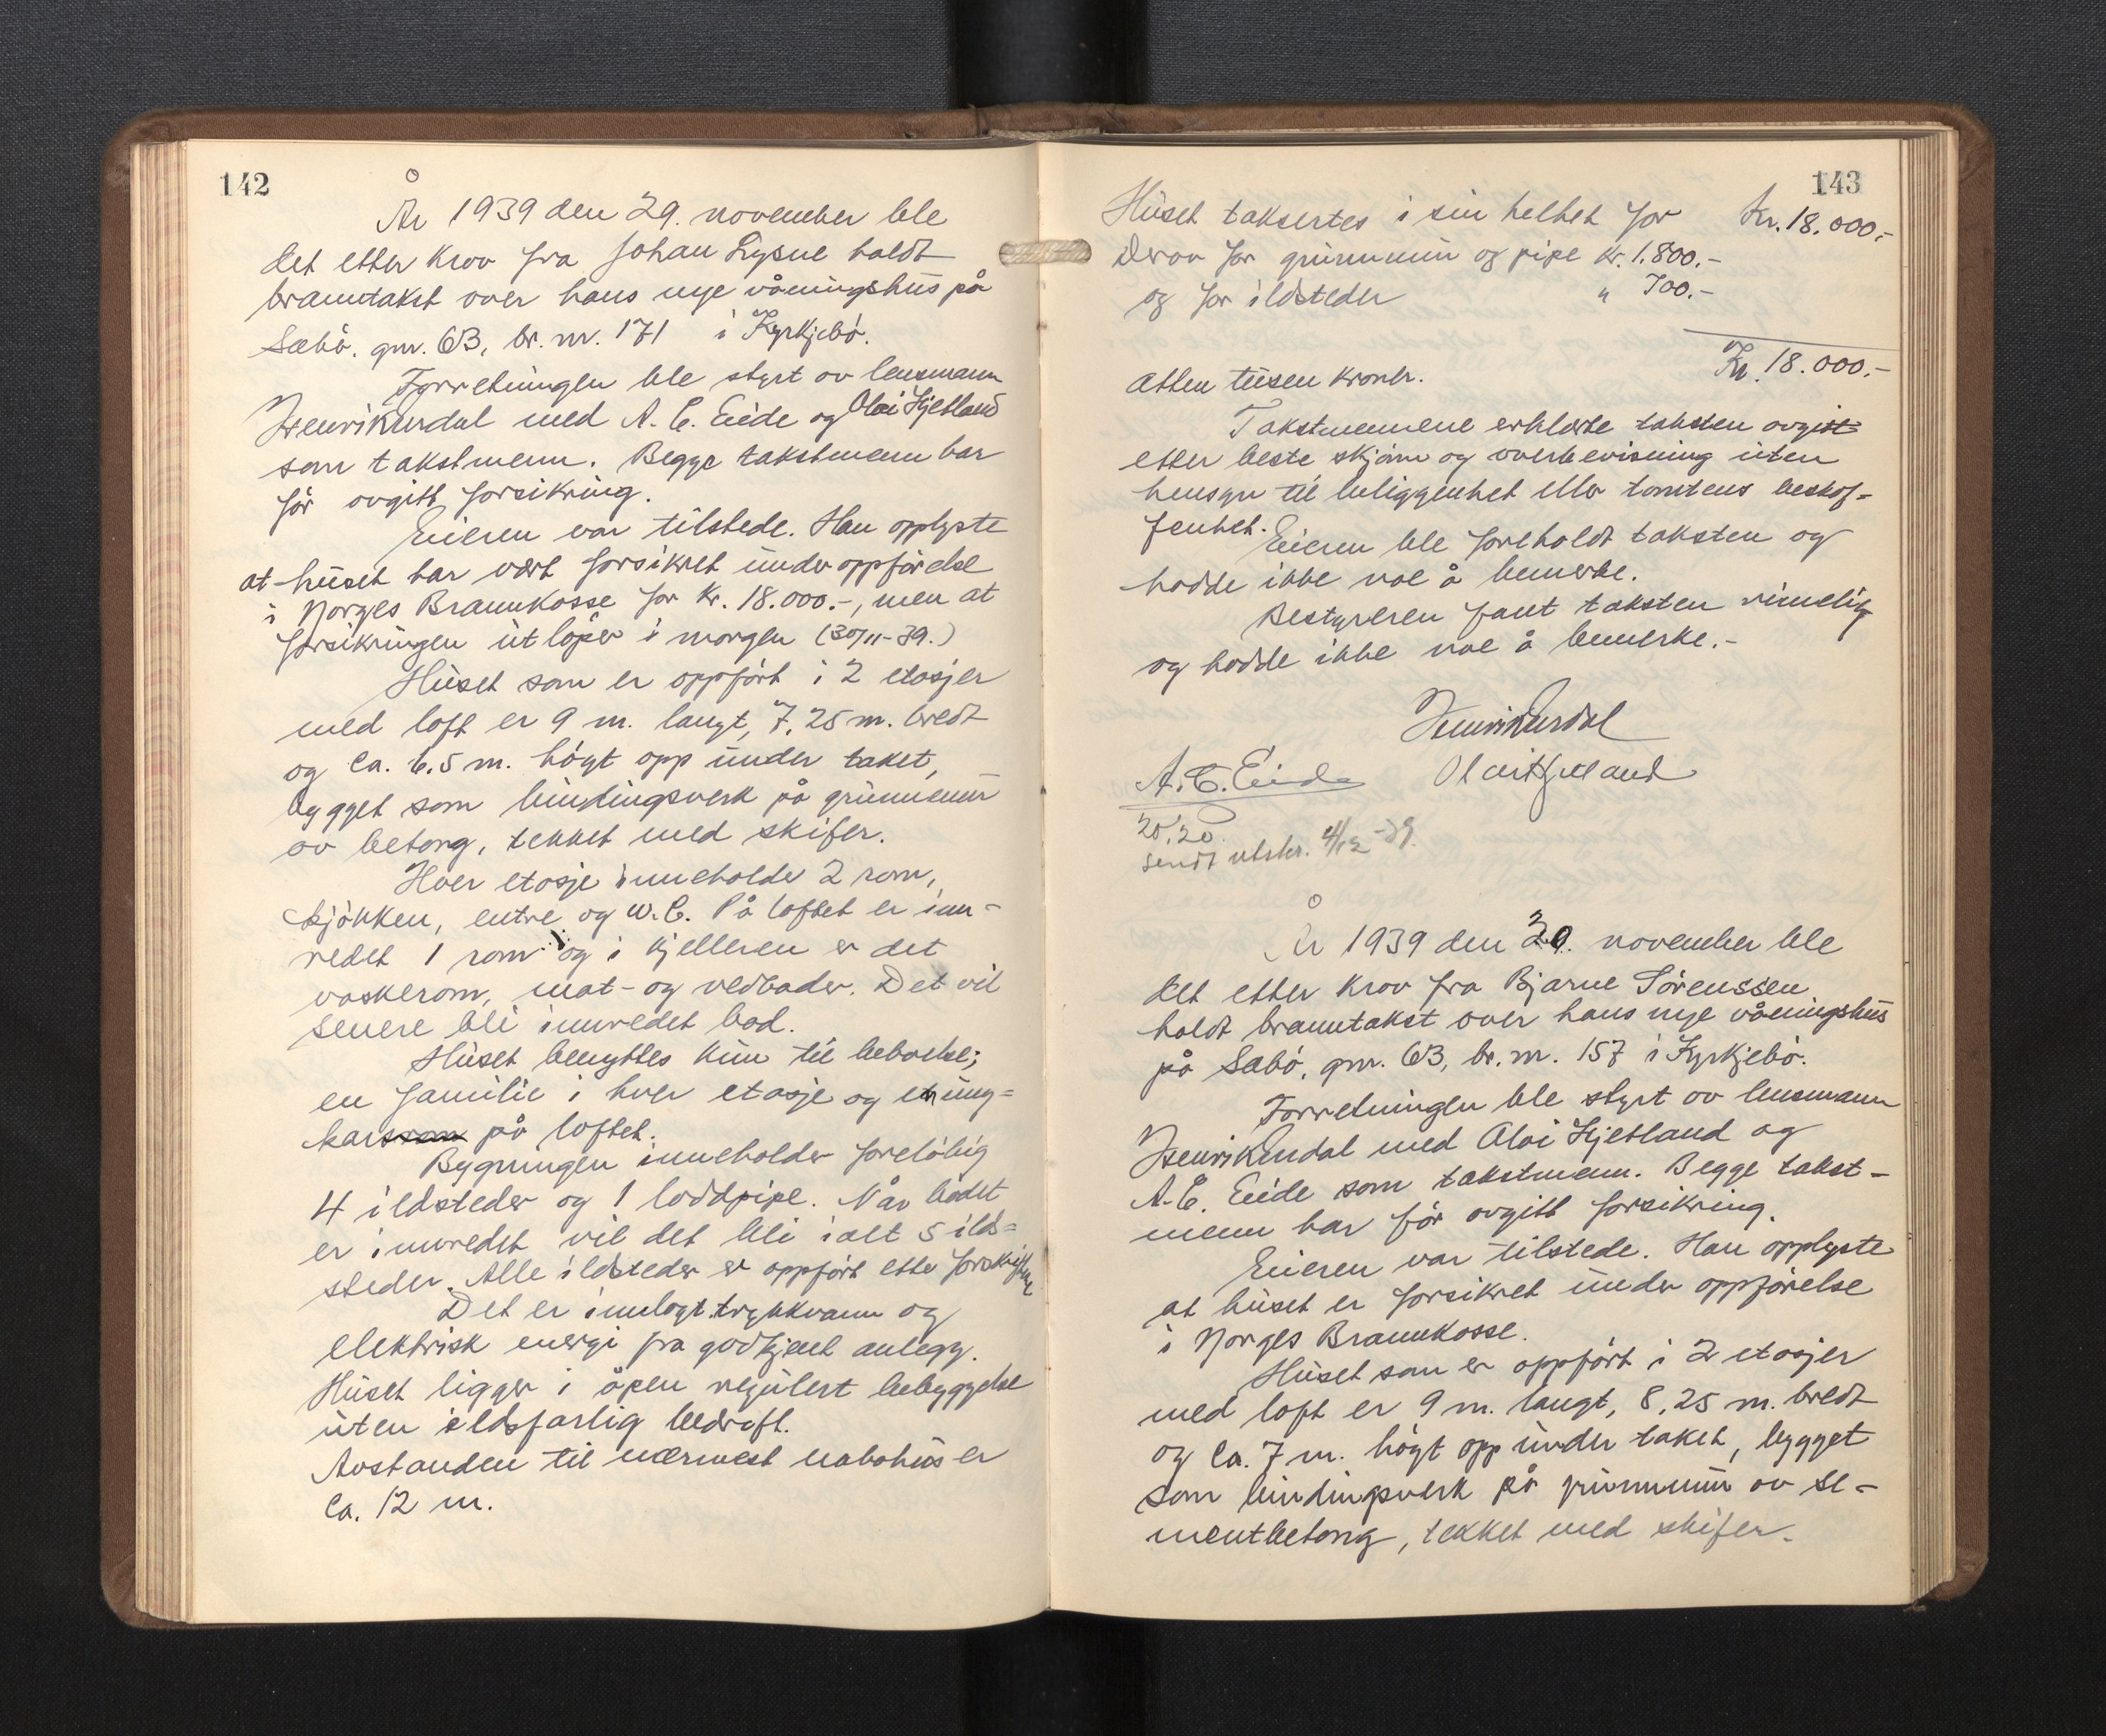 142
År 1939 den 29. november ble
det etter krav fra Johan Lysne holdt
branntakst over hans nye våningshus på
Sæbö, gnr. 63, br. nr. 171 i Kyrkjebö.
Forretningen ble styrt av lensmann
Henrik Erdal med A. C. Eide og Olai Hjetland
som takstmenn. Begge takstmenn har
för avgitt forsikring.
Eieren var tilstede. Han opplyste
at huset har vært forsikret under oppförelse
i Norges Brannkasse for kr. 18.000.-, men at
forsikringen utlöper i morgen (30/11-39.)
Huset som er oppfört i 2 etasjer
med loft er 9 m. langt, 7,25 m. bredt
og ca. 6.5 m. högt opp under taket,
bygget som bindingsverk på grunnmur
av betong, tekket med skifer.
Hver etasje inneholder 2 rom,
kjökken, entre og W.C. På loftet er inn-
redet 1 rom og i kjelleren er det
vaskerom, mat- og vedboder. Det vil
senere bli innredet bad.
Huset benyttes kun til beboelse;
en familie i hver etasje og en ung-
karsrom på loftet.
Bygningen inneholder forelöbig
4 ildsteder og 1 loddpipe. Når badet
er innredet vil det bli i alt 5 ild-
steder. Alle ildsteder er oppfört etter forskriftene
Det er innlagt trykkvann og
elektrisk energi fra godkjent anlegg.
Huset ligger i åpen regulert bebyggelse
uten ildsfarlig bedrift.
Avstanden til nærmest nabohus er
ca. 12 m.
143
Huset taksertes i sin helhet for Kr. 18.000.-
Derav for grunnmur og pipe kr. 1.800.-
og for ildsteder " 700.-
Kr. 18.000.-
Atten tusen kroner.
Takstmennene erklærte taksten avgitt
etter beste skjönn og overbevisning uten
hensyn til beliggenhet eller tomtens beskaf-
fenhet.
Eieren ble foreholdt taksten og
hadde ikke noe å bemerke.
Bestyreren fant taksten rimelig
og hadde ikke noe å bemerke.-
Henrik Erdal
A. C. Eide Olai Hjetland
20,20
Sendt utskr. 4/12-39.
År 1939 den 29. november ble
det etter krav fra Bjarne Sörenssen
holdt branntakst over hans nye våningshus
på Sæbö, gnr. 63, br. nr. 157 i Kyrkjebö.
Forretningen ble styrt av lensmann
Henrik Erdal med Olai Hjetland og
A. C. Eide som takstmenn. Begge takst-
menn har för avgitt forsikring.
Eieren var tilstede. Han opplyste
at huset er forsikret under oppförelse
i Norges Brannkasse.
Huset som er oppfört i 2 etasjer
med loft er 9 m. langt, 8,25 m. bredt
og ca. 7 m. högt opp under taket, bygget
som bindingsverk på grunnmur av se-
mentbetong, tekket med skifer.